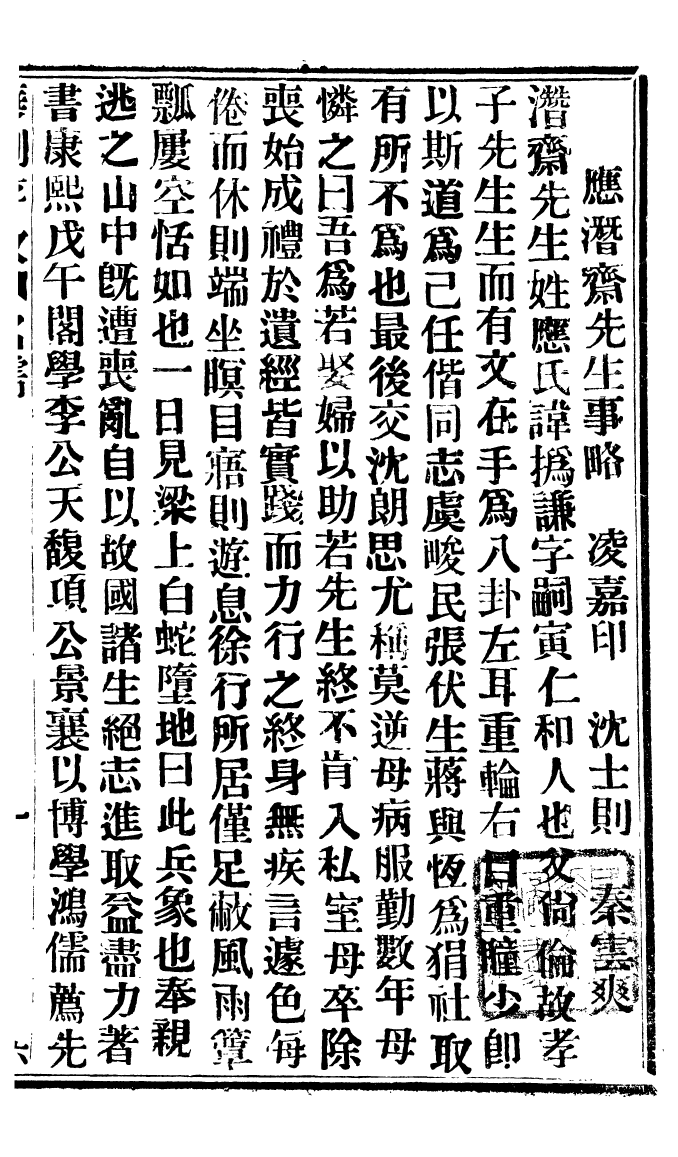 應潛齋先生事略　凌嘉印　沈士則　秦雲爽
潛齋先生姓應氏諱撝謙字嗣寅仁和人也父尙倫故孝
子先生生而有文在手爲八卦左耳重輪右目重瞳少卽
以斯道爲己任偕同志虞畯民張伏生蔣與恆爲狷社取
有所不爲也最後交沈朗思尤稱莫逆母病服勤數年母
憐之曰吾爲若娶婦以助若先生終不肯入私室母卒除
喪始成禮於遺經皆實踐而力行之終身無疾言遽色每
倦而休則端坐瞑目寤則遊息徐行所居僅足蔽風雨簞
瓢屢空恬如也一日見梁上白蛇墮地曰此兵象也奉親
逃之山中旣遭喪亂自以故國諸生絕志進取益盡力著
書康熙戊午閣學李公天馥項公景襄以博學鴻儒薦先